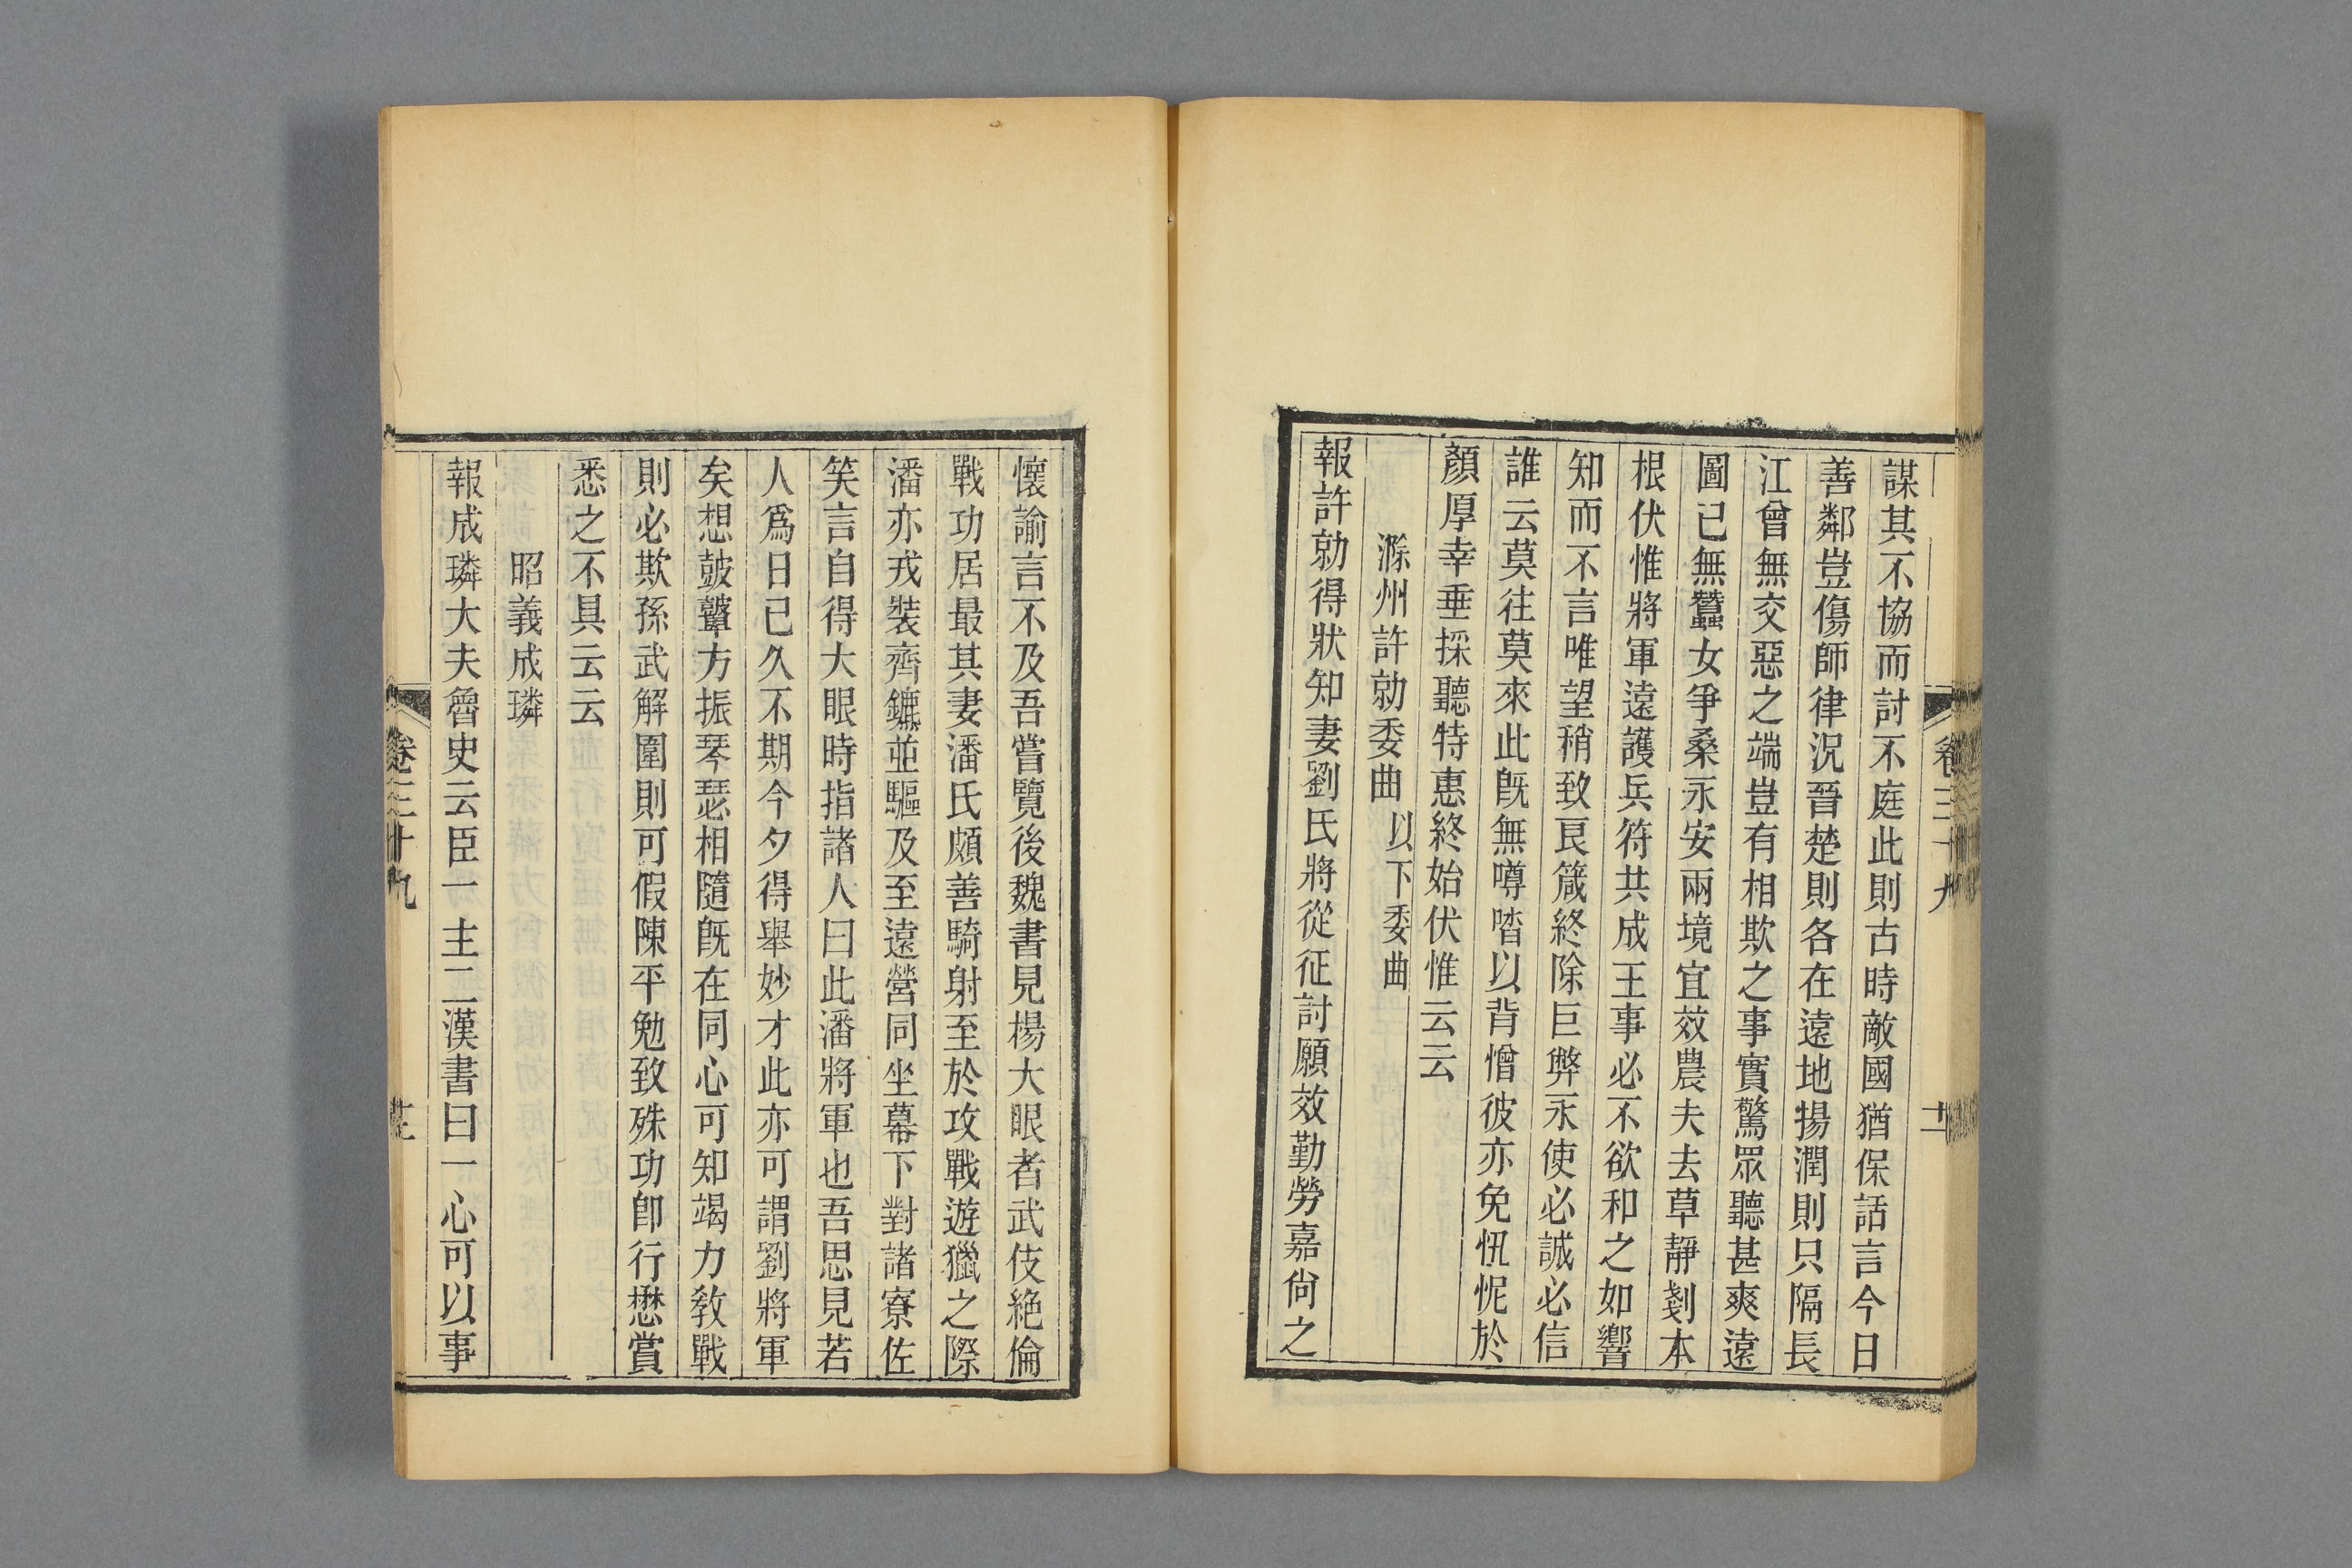 謀其不協而討不庭此則古時敵國猶保話言今日
善鄰豈傷師律況晉楚則各在遠地揚潤則只隔長
江曾無交惡之端豈有相欺之事實驚眾聽甚爽遠
圖已無蠶女爭桑永安兩境宜效農夫去草靜剗本
根伏惟將軍遠護兵符共成王事必不欲和之如響
知而不言唯望稍致良箴終除巨弊永使必誠必信
誰云莫往莫來此旣無噂喈以背憎彼亦免忸怩於
顏厚幸垂採聽特惠終始伏惟云云
滁州許勍委曲 以下委曲
報許勍得狀知妻劉氏將從征討願效勤勞嘉尙之
懷諭言不及吾嘗覽後魏書見楊大眼者武伎絶倫
戰功居最其妻潘氏頗善騎射至於攻戰遊獵之際
潘亦戎裝齊鑣並驅及至遠營同坐幕下對諸寮佐
笑言自得大眼時指諸人曰此潘將軍也吾思見若
人爲日已久不期今夕得舉妙才此亦可謂劉將軍
矣想鼓鼙方振琴瑟相隨旣在同心可知竭力敎戰
則必欺孫武解圍則可假陳平勉致殊功卽行懋賞
悉之不具云云
昭義成璘
報成璘大夫魯史云臣一主二漢書曰一心可以事
卷三十九